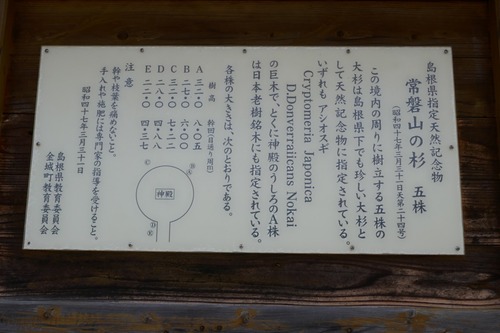 島根県指定天然記念物
常磐山の杉　五株
（昭和四十七年三月三十一日夫第二十四号）
この境内の周りに樹立する五株の
大杉は島根県下でも珍しい大杉と
して天然記念物に指定されている。
いずれも アシオスギ
Cryptomeria Japonica
D.Donverraiicans Nokai
の巨木で、とくに神殿のうしろのA株
は日本老樹銘木にも指定されている。
各株の大きさは、次のとおりである。
樹高　幹囲（目通り周囲）
A 三二・〇　八・〇五
B 二七・〇　六・〇〇
C 三二・〇　七・一二
D 二八・〇　四・八八
E 三二・〇　四・三七
Ⓐ
Ⓑ
Ⓒ
神殿
Ⓓ
Ⓔ
注意
幹や枝葉を痛めないこと。
手入れや施肥には専門家の指導を受けること。
昭和四十七年三月三十一日
島根県教育委員会
金城町教育委員会